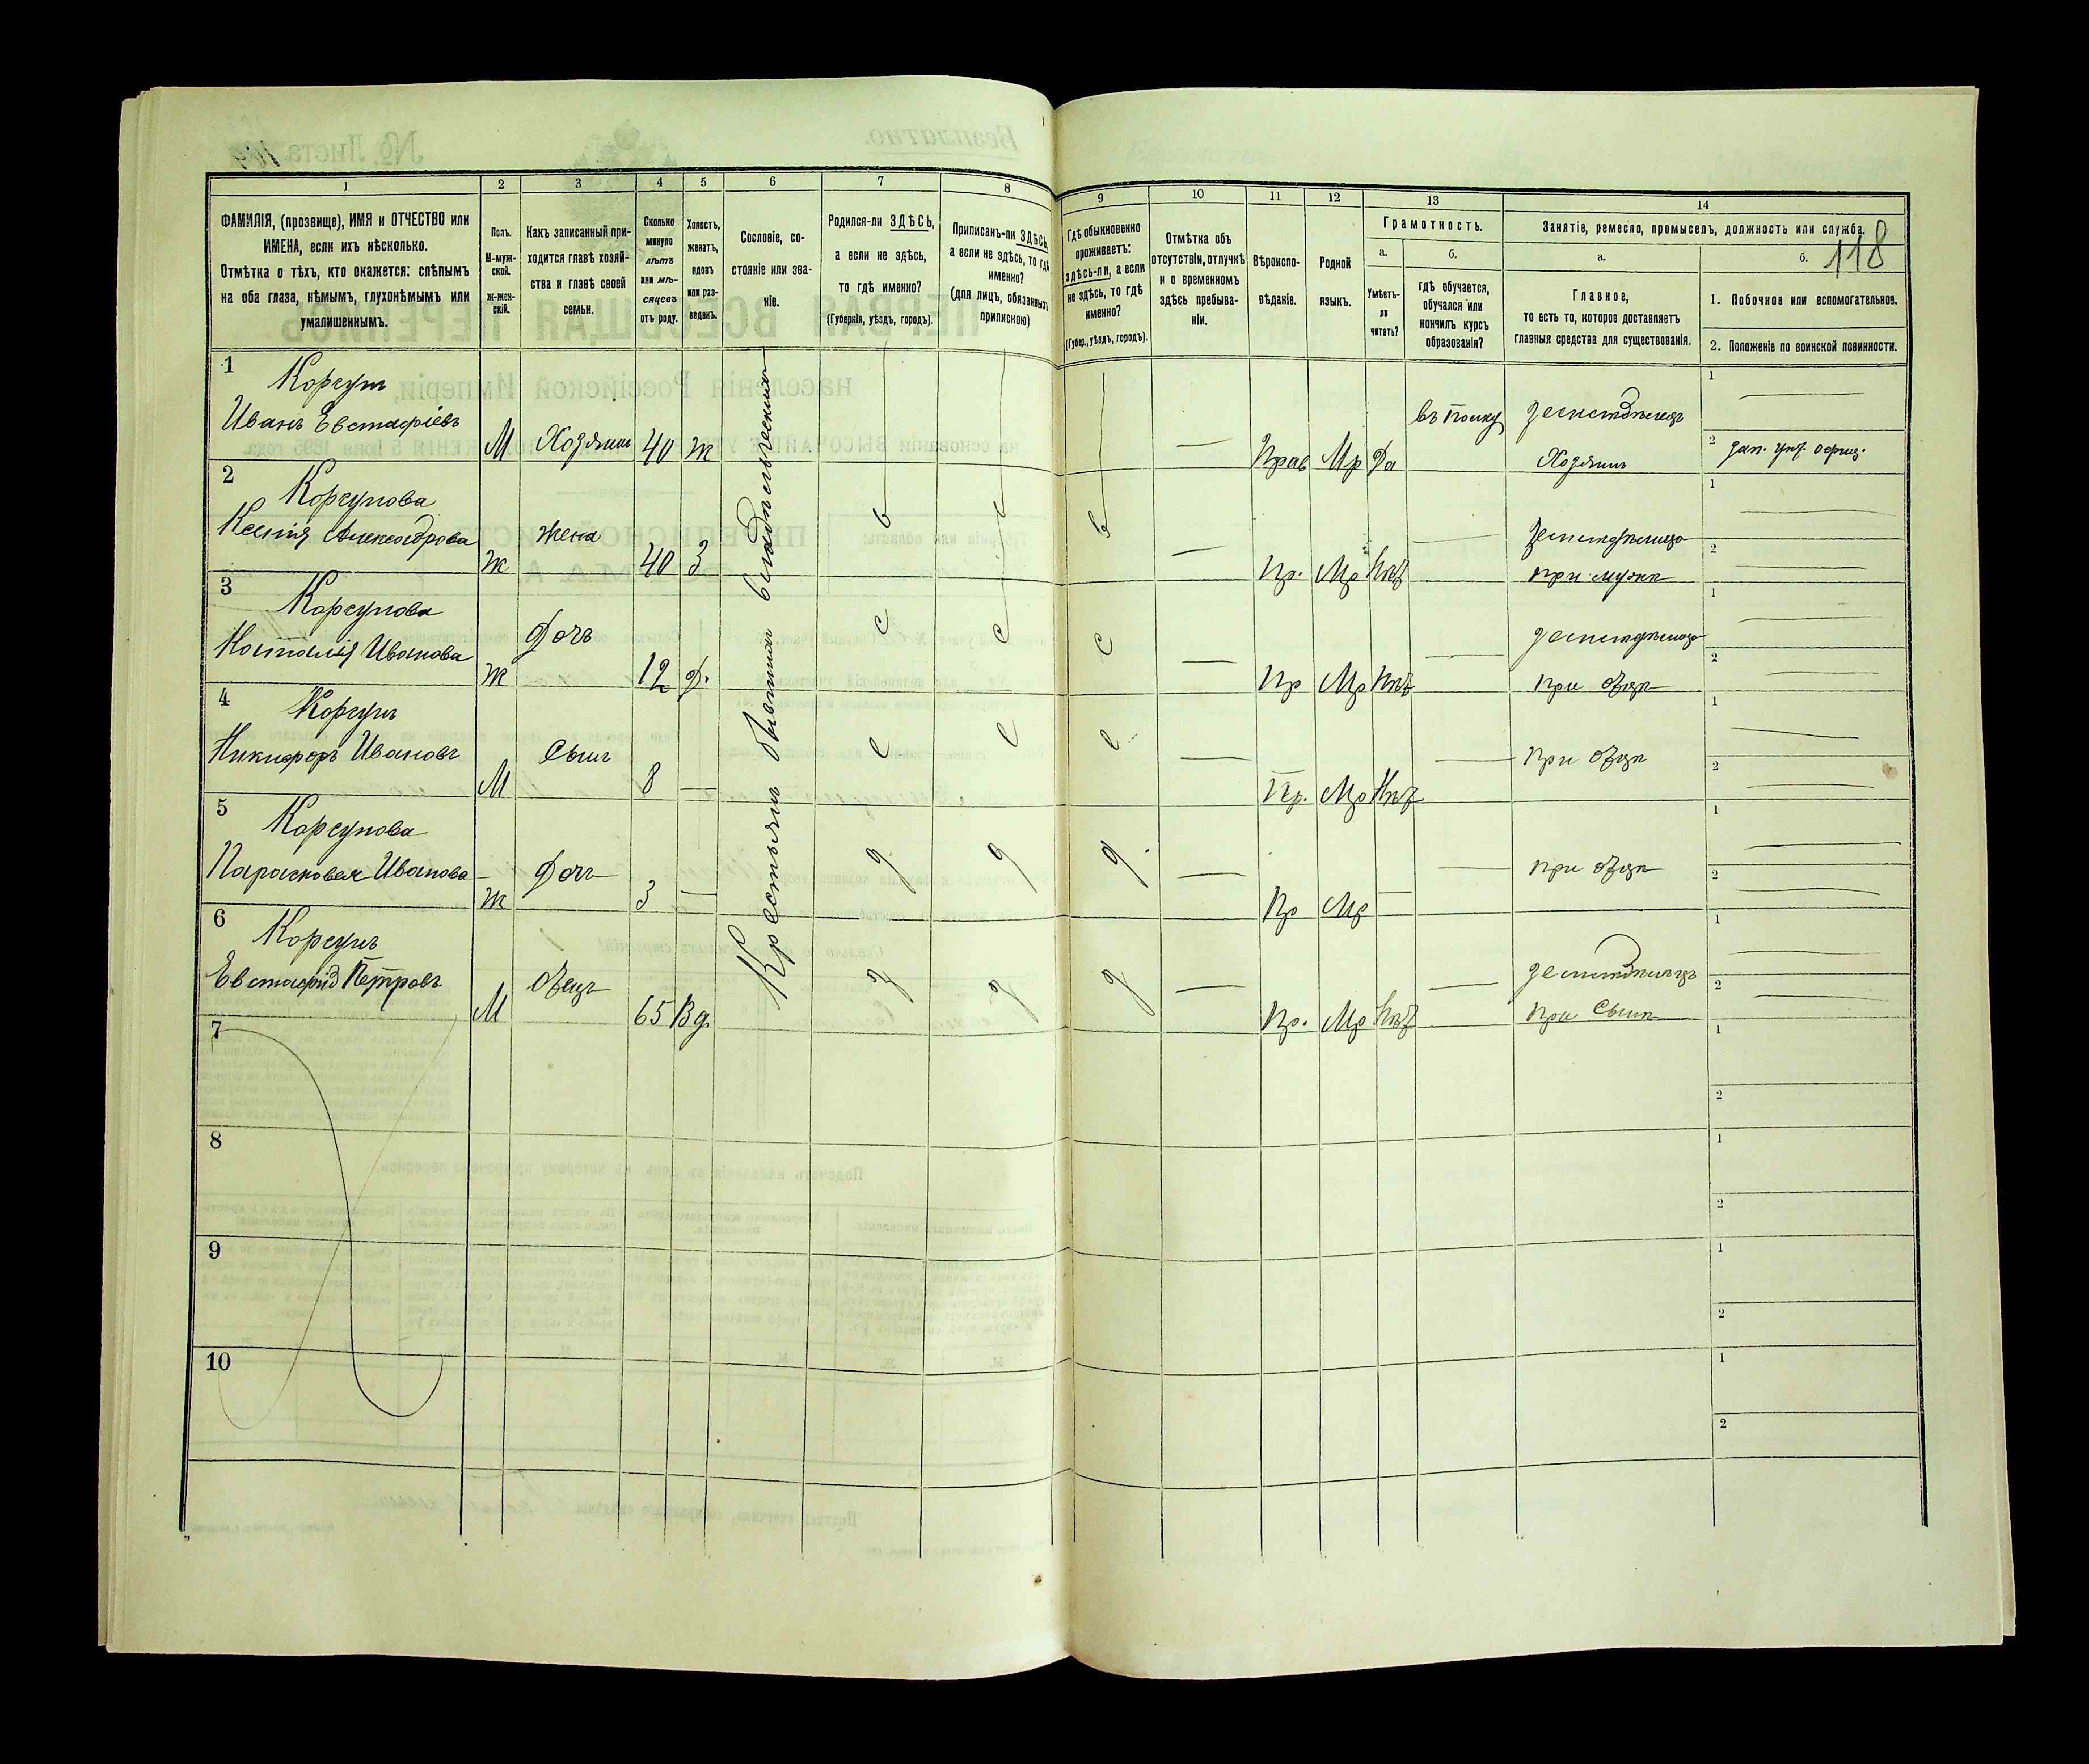 1 2 3 4 5 6 7 8 9 10 11 12 13 14
118
ФАМИЛІЯ, (прозвище), ИМЯ и ОТЧЕСТВО или
ИМЕНА, если ихъ нѣсколько.
Отмѣтка о тѣхъ, кто окажется: слѣпымъ
на оба глаза, нѣмымъ, глухонѣмымъ или
умалишеннымъ.
Полъ.
М-муж-
ской.
ж-жен-
скій.
Какъ записанный при-
ходится главѣ хозяй-
ства и главѣ своей
семьи.
Сколько
минуло
лѣтъ
или мѣ-
сяцевъ
отъ роду.
Холостъ,
женатъ,
вдовъ
или раз-
веденъ.
Сословіе, со-
стояніе или зва-
ніе.
Родился-ли ЗДѢСЬ,
а если не здѣсь,
то гдѣ именно?
(Губернія, уѣздъ, городъ).
Приписанъ-ли ЗДѢСЬ,
а если не здѣсь, то гдѣ
именно?
(для лицъ, обязанныхъ
припискою)
Гдѣ обыкновенно
проживаетъ:
здѣсь-ли, а если
не здѣсь, то гдѣ
именно?
(Губер., уѣздъ, городъ).
Отмѣтка объ
отсутствіи, отлучкѣ
и о временномъ
здѣсь пребыва-
ніи.
Вѣроиспо-
вѣданіе.
Родной
языкъ.
Грамотность.
а.
Умѣетъ-
ли
читать?
б.
гдѣ обучается,
обучался или
кончилъ курсъ
образованія?
Занятіе, ремесло, промыселъ, должность или служба.
а.
Главное,
то есть то, которое доставляетъ
главныя средства для существованія.
б.
1. Побочное или вспомогательное.
2. Положеніе по воинской повинности.
Крестьянъ бывшихъ владѣльческихъ
1 Корсунъ
Иванъ Евстафіевъ М Хозяинъ 40 ж — Прав Мр Да въ полку земледѣлецъ
Хозяинъ
1
2 зап. унт. офиц.
2 Корсунова
Ксенія Александрова ж жена 40 З — Пр. Мр Нѣт — земледѣлица
при мужѣ
1
2
3 Корсунова
Наталія Иванова ж Дочь 12 Д. — Пр Мр Нѣт — земледѣлица
при отцѣ
1
2
4 Корсунъ
Никифоръ Ивановъ М Сынъ 8 — — Пр. Мр Нѣт — при отцѣ
1
2
5 Корсунова
Парасковея Иванова ж Дочь 3 — — Пр Мр — — при отцѣ
1
2
6 Корсунъ
Евстафій Петровъ М Отецъ 65 Вд. — Пр. Мр Нѣт — земледѣлецъ
при Сынѣ
1
2
7
1
2
8
1
2
9
1
2
10
1
2